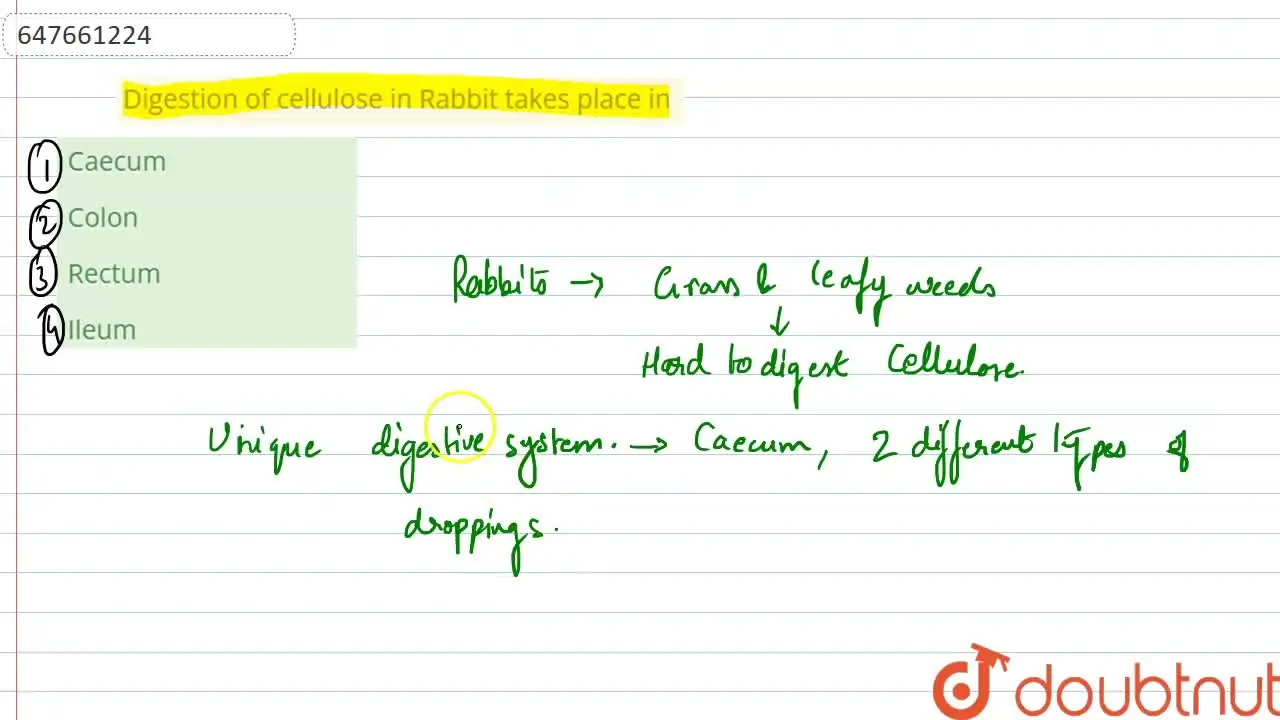 647661224
Digestion of cellulose in Rabbit takes place in
1 Caecum
2 Colon
3 Rectum
4 Ileum
Rabbits → Grass & leafy weeds
↓
Hard to digest Cellulose.
Unique digestive system. → Caecum, 2 different types of
droppings.
doubtnut